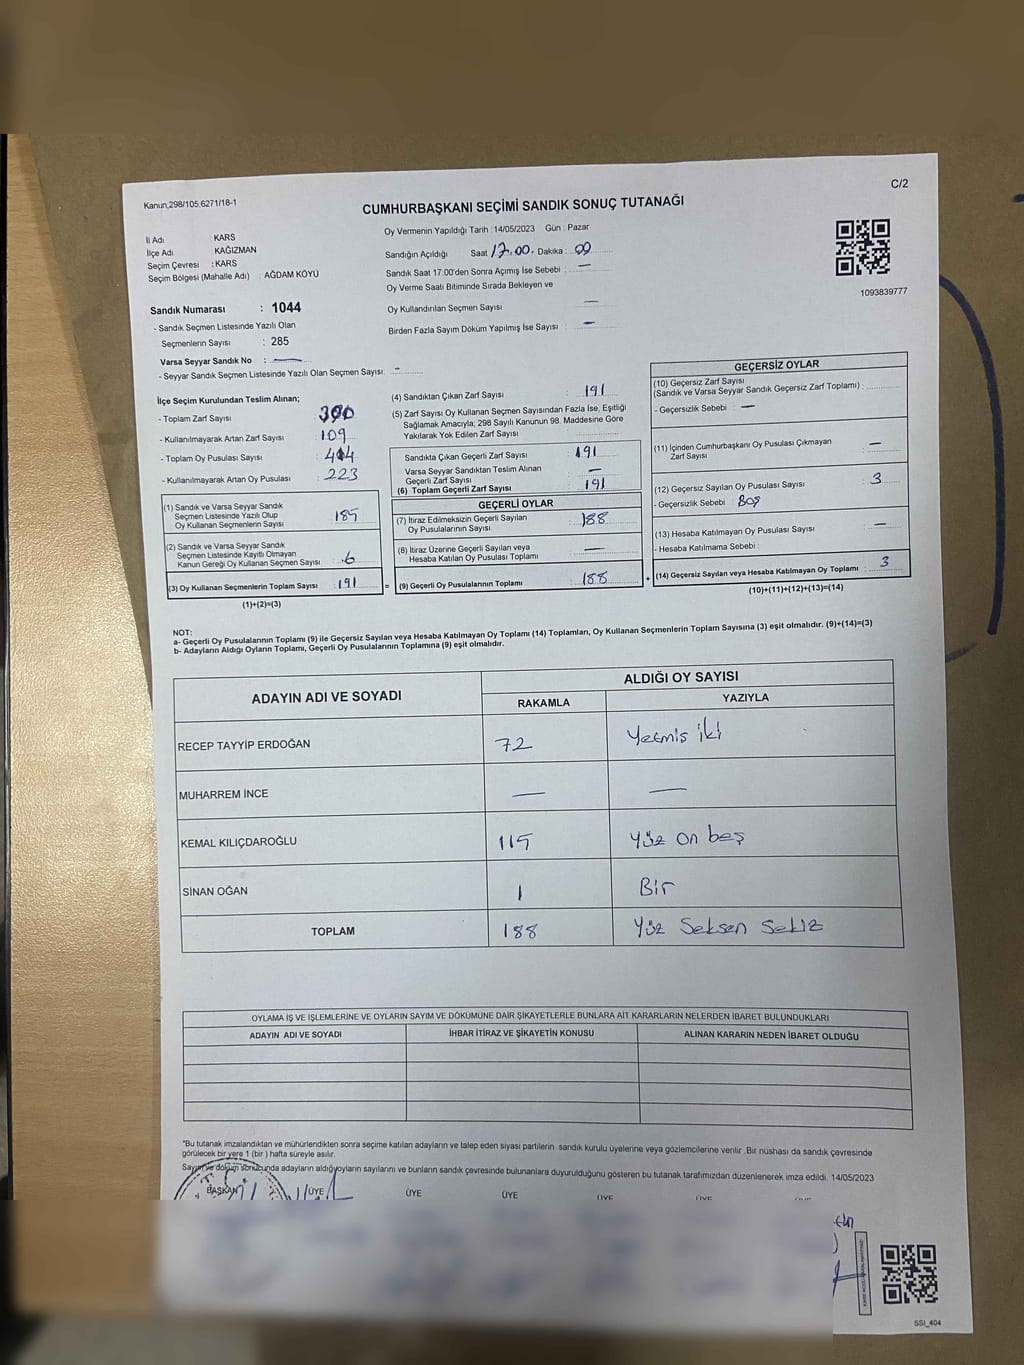 Kanun,298/105,6271/18-1
C/2
CUMHURBAŞKANI SEÇİMİ SANDIK SONUÇ TUTANAĞI
İli Adı : KARS
İlçe Adı : KAĞIZMAN
Seçim Çevresi : KARS
Seçim Bölgesi (Mahalle Adı) : AĞDAM KÖYÜ
Oy Vermenin Yapıldığı Tarih : 14/05/2023 Gün : Pazar
Sandığın Açıldığı Saat 17.00. Dakika : 00
Sandık Saat 17:00'den Sonra Açımış İse Sebebi : —
Oy Verme Saati Bitiminde Sırada Bekleyen ve
Oy Kullandırılan Seçmen Sayısı —
Birden Fazla Sayım Döküm Yapılmış İse Sayısı : —
1093839777
Sandık Numarası : 1044
- Sandık Seçmen Listesinde Yazılı Olan
Seçmenlerin Sayısı : 285
Varsa Seyyar Sandık No : —
- Seyyar Sandık Seçmen Listesinde Yazılı Olan Seçmen Sayısı: -
İlçe Seçim Kurulundan Teslim Alınan;
- Toplam Zarf Sayısı
- Kullanılmayarak Artan Zarf Sayısı : 109
- Toplam Oy Pusulası Sayısı : 414
- Kullanılmayarak Artan Oy Pusulası : 223
(1) Sandık ve Varsa Seyyar Sandık
Seçmen Listesinde Yazılı Olup
Oy Kullanan Seçmenlerin Sayısı 185
(2) Sandık ve Varsa Seyyar Sandık
Seçmen Listesinde Kayıtlı Olmayan
Kanun Gereği Oy Kullanan Seçmen Sayısı 6
(3) Oy Kullanan Seçmenlerin Toplam Sayısı : 191 =
(1)+(2)=(3)
(4) Sandıktan Çıkan Zarf Sayısı : 191
(5) Zarf Sayısı Oy Kullanan Seçmen Sayısından Fazla İse, Eşitliği
Sağlamak Amacıyla; 298 Sayılı Kanunun 98. Maddesine Göre
Yakılarak Yok Edilen Zarf Sayısı
Sandıkta Çıkan Geçerli Zarf Sayısı : 191
Varsa Seyyar Sandıktan Teslim Alınan
Geçerli Zarf Sayısı —
(6) Toplam Geçerli Zarf Sayısı : 191
GEÇERLİ OYLAR
(7) İtiraz Edilmeksizin Geçerli Sayılan
Oy Pusulalarının Sayısı : 188
(8) İtiraz Üzerine Geçerli Sayılan veya
Hesaba Katılan Oy Pusulası Toplamı —
(9) Geçerli Oy Pusulalarının Toplamı : 188 +
GEÇERSİZ OYLAR
(10) Geçersiz Zarf Sayısı
(Sandık ve Varsa Seyyar Sandık Geçersiz Zarf Toplamı) :
- Geçersizlik Sebebi : —
(11) İçinden Cumhurbaşkanı Oy Pusulası Çıkmayan
Zarf Sayısı —
(12) Geçersiz Sayılan Oy Pusulası Sayısı : 3
- Geçersizlik Sebebi : Boş
(13) Hesaba Katılmayan Oy Pusulası Sayısı : —
- Hesaba Katılmama Sebebi :
(14) Geçersiz Sayılan veya Hesaba Katılmayan Oy Toplamı : 3
(10)+(11)+(12)+(13)=(14)
NOT:
a- Geçerli Oy Pusulalarının Toplamı (9) ile Geçersiz Sayılan veya Hesaba Katılmayan Oy Toplamı (14) Toplamları, Oy Kullanan Seçmenlerin Toplam Sayısına (3) eşit olmalıdır. (9)+(14)=(3)
b- Adayların Aldığı Oyların Toplamı, Geçerli Oy Pusulalarının Toplamına (9) eşit olmalıdır.
ADAYIN ADI VE SOYADI
ALDIĞI OY SAYISI
RAKAMLA YAZIYLA
RECEP TAYYİP ERDOĞAN 72 Yetmiş iki
MUHARREM İNCE — —
KEMAL KILIÇDAROĞLU 115 Yüz on beş
SİNAN OĞAN 1 Bir
TOPLAM 188 Yüz Seksen Sekiz
OYLAMA İŞ VE İŞLEMLERİNE VE OYLARIN SAYIM VE DÖKÜMÜNE DAİR ŞİKAYETLERLE BUNLARA AİT KARARLARIN NELERDEN İBARET BULUNDUKLARI
ADAYIN ADI VE SOYADI İHBAR İTİRAZ VE ŞİKAYETİN KONUSU ALINAN KARARIN NEDEN İBARET OLDUĞU
*Bu tutanak imzalandıktan ve mühürlendikten sonra seçime katılan adayların ve talep eden siyası partilerin sandık kurulu üyelerine veya gözlemcilerine verilir. Bir nüshası da sandık çevresinde
görülecek bir yere 1 (bir ) hafta süreyle asılır.
Sayım ve döküm sonucunda adayların aldığıoyların sayılarını ve bunların sandık çevresinde bulunanlara duyurulduğunu gösteren bu tutanak tarafımızdan düzenlenerek imza edildi. 14/05/2023
BAŞKAN ÜYE ÜYE ÜYE ÜYE ÜYE
SSI_404